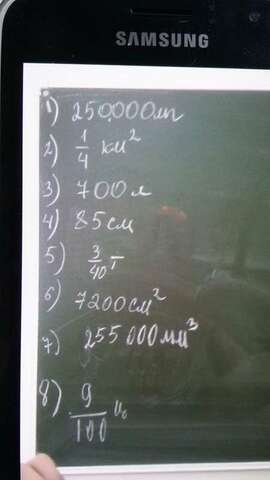 SAMSUNG
1) 250000 мл
2) 1/4 км²
3) 700 л
4) 85 см
5) 3/40 т
6) 7200 см²
7) 255000 мм³
8) 9/100 ц